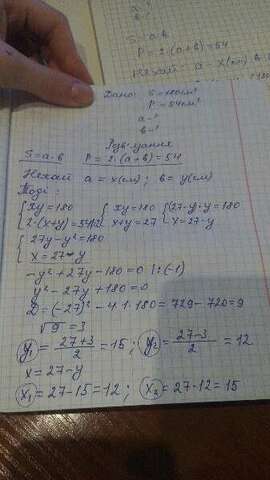 a-?
b-?
S=a·b
P=2·(a+b)=54
Нехай a-x(см) b
Дано: S=180см²
P=54см
a-?
b-?
Розв'язання
S=a·b P=2·(a+b)=54
Нехай a=x(см); b=y(см)
Тоді:
{xy=180 {xy=180 {(27-y)·y=180
{2·(x+y)=54|:2 {x+y=27 {x=27-y
{27y-y²=180
{x=27-y
-y²+27y-180=0 |:(-1)
y²-27y+180=0
D=(-27)²-4·1·180=729-720=9
√9=3
y₁=27+3/2=15; y₂=27-3/2=12
x=27-y
x₁=27-15=12; x₂=27-12=15